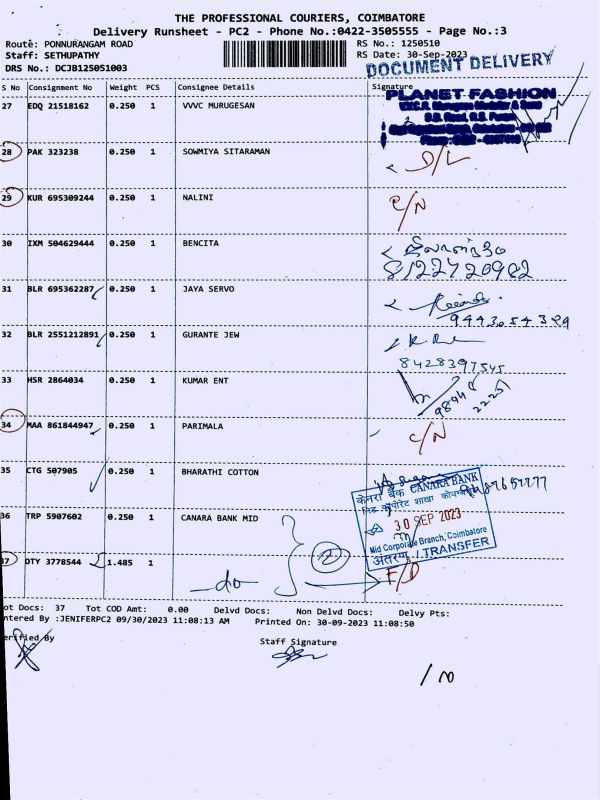 THE PROFESSIONAL COURIERS, COIMBATORE
Delivery Runsheet - PC2 - Phone No.:0422-3505555 - Page No.:3
Route: PONNURANGAM ROAD RS No.: 1250510
Staff: SETHUPATHY RS Date: 30-Sep-2023
DRS No.: DCJB125051003
DOCUMENT DELIVERY
S No Consignment No Weight PCS Consignee Details Signature
PLANET FASHION
27 EDQ 21518162 0.250 1 VVVC MURUGESAN
28 PAK 323238 0.250 1 SOWMIYA SITARAMAN D/L
29 KUR 695309244 0.250 1 NALINI C/N
30 IXM 504629444 0.250 1 BENCITA
8122720902
31 BLR 695362287 0.250 1 JAYA SERVO
9443054329
32 BLR 2551212891 0.250 1 GURANTE JEW
8428397545
33 HSR 2864034 0.250 1 KUMAR ENT
34 MAA 861844947 0.250 1 PARIMALA C/N
35 CTG 507905 0.250 1 BHARATHI COTTON
केनरा बैंक CANARA BANK
36 TRP 5907602 0.250 1 CANARA BANK MID
30 SEP 2023
Mid Corporate Branch, Coimbatore
अंतरण / TRANSFER
37 OTY 3778544 1.485 1 F/D
do
2
ot Docs: 37 Tot COD Amt: 0.00 Delvd Docs: Non Delvd Docs: Delvy Pts:
ntered By :JENIFERPC2 09/30/2023 11:08:13 AM Printed On: 30-09-2023 11:08:50
erified By Staff Signature